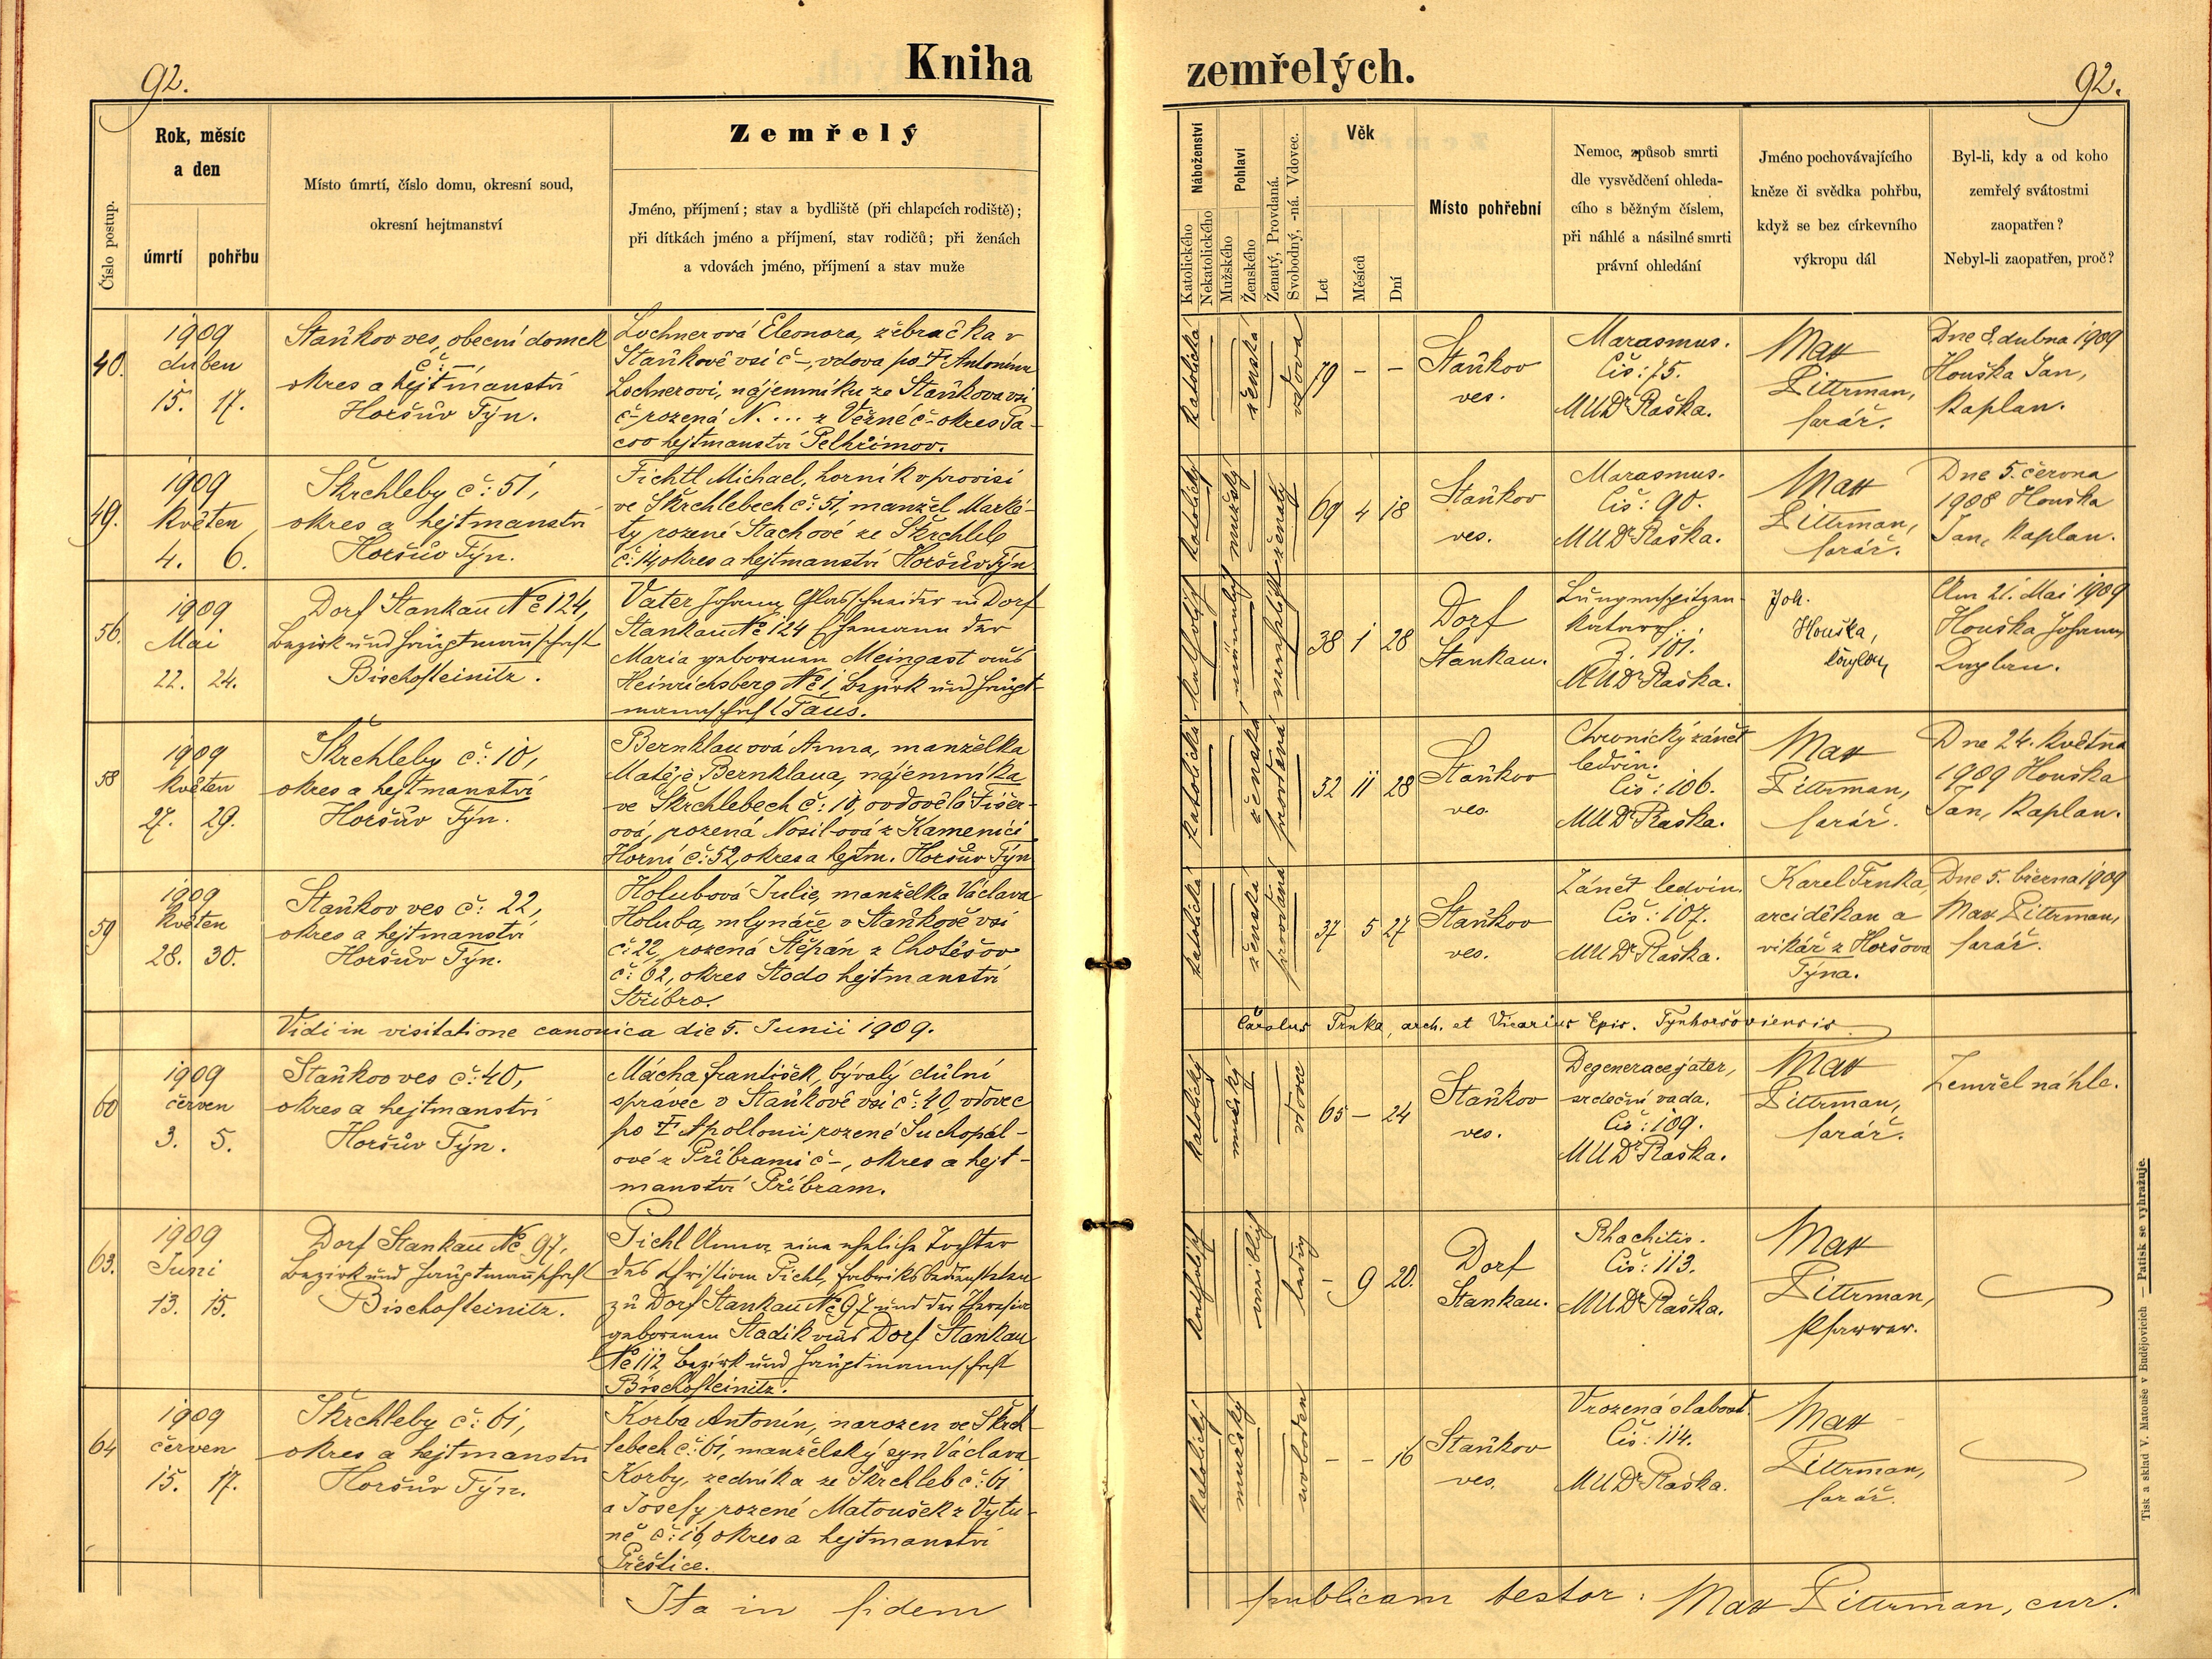 92.
Kniha
zemřelých.
92.
Číslo postup.
Rok, měsíc
a den
úmrtí
pohřbu
Místo úmrtí, číslo domu, okresní soud,
okresní hejtmanství
Zemřelý
Jméno, příjmení; stav a bydliště (při chlapcích rodiště);
při dítkách jméno a příjmení, stav rodičů; při ženách
a vdovách jméno, příjmení a stav muže
Náboženství
Katolického
Nekatolického
Pohlaví
Mužského
Ženského
Ženatý, Provdaná.
Svobodný, -ná. Vdovec.
Věk
Let
Měsíců
Dní
Místo pohřební
Nemoc, způsob smrti
dle vysvědčení ohleda-
cího s běžným číslem,
při náhlé a násilné smrti
právní ohledání
Jméno pochovávajícího
kněze či svědka pohřbu,
když se bez církevního
výkropu dál
Byl-li, kdy a od koho
zemřelý svátostmi
zaopatřen?
Nebyl-li zaopatřen, proč?
40.
1909
duben
15. 17.
Staňkov ves, obecní domek
č: —
okres a hejtmanství
Horšův Týn.
Lochnerová Eleonora, žebračka v
Staňkově vsi č –, vdova po † Antonínu
Lochnerovi, nájemníku ze Staňkova vsi
č – rozená N. ... z Věžné č – okres Pa-
cov hejtmanství Pelhřimov.
katolická
ženská
vdova
79 – –
Staňkov
ves.
Marasmus.
Čís: 75.
MUDr Raška.
Max
Pittrman,
farář.
Dne 8. dubna 1909
Houška Jan,
kaplan.
49.
1909
květen
4. 6.
Škrchleby č: 51,
okres a hejtmanství
Horšův Týn.
Fichtl Michael, horník v provisi
ve Škrchlebech č: 51, manžel Marké-
ty rozené Stachové ze Škrchleb
č: 14, okres a hejtmanství Horšův Týn.
katolický
mužský
ženatý
69 4 18
Staňkov
ves.
Marasmus.
Čís: 90.
MUDr Raška.
Max
Pittrman,
farář.
Dne 5. června
1908 Houška
Jan, kaplan.
56.
1909
Mai
22. 24.
Dorf Stankau No 124,
Bezirk und Hauptmannschaft
Bischofteinitz.
Vater Johann, Glasschneider in Dorf
Stankau No 124 Ehemann der
Maria geborenen Meingast aus
Heinrichsberg No 1, Bezirk und Haupt-
mannschaft Taus.
katholisch
männlich
verehelicht
38 1 28
Dorf
Stankau.
Lungenspitzen-
katarrh.
Z. 101.
MUDr Raška.
Joh.
Houška,
Kaplan
Am 21. Mai 1909
Houška Johann,
Kaplan.
58
1909
květen
27. 29.
Škrchleby č: 10,
okres a hejtmanství
Horšův Týn.
Bernklauová Anna, manželka
Matěje Bernklaua, nájemníka
ve Škrchlebech č: 10, ovdovělá Fišer-
ová, rozená Nosilová z Kamenici
Horní č: 52, okres a hejtm. Horšův Týn
katolická
ženská
provdaná
52 11 28
Staňkov
ves.
Chronický zánět
ledvin.
Čís: 106.
MUDr Raška.
Max
Pittrman,
farář.
Dne 24. května
1909 Houška
Jan, kaplan.
59
1909
květen
28. 30.
Staňkov ves č: 22,
okres a hejtmanství
Horšův Týn.
Holubová Julie, manželka Václava
Holuba, mlynáře v Staňkově vsi
č: 22, rozená Štěpán z Chotěšov
č: 62, okres Stodo hejtmanství
Stříbro.
katolická
ženská
provdaná
37 5 27
Staňkov
ves.
Zánět ledvin.
Čís: 107.
MUDr Raška.
Karel Trnka,
arciděkan a
vikář z Horšova
Týna.
Dne 5. března 1909
Max Pittrman,
farář.
Vidi in visitatione canonica die 5. Junii 1909.
Carolus Trnka, arch. et Vicarius Epis. Tynhoršoviensis
60
1909
červen
3. 5.
Staňkov ves č: 40,
okres a hejtmanství
Horšův Týn.
Mácha František, bývalý důlní
správec v Staňkově vsi č: 40, vdovec
po † Apollonii rozené Suchopál-
ové z Příbrami č –, okres a hejt-
manství Příbram.
katolický
mužský
vdovec
65 – 24
Staňkov
ves.
Degenerace jater,
srdeční vada.
Čís: 109.
MUDr Raška.
Max
Pittrman,
farář.
Zemřel náhle.
63.
1909
Juni
13. 15.
Dorf Stankau No 97,
Bezirk und Hauptmannschaft
Bischofteinitz.
Pichl Anna, eine eheliche Tochter
des Christian Pichl, Fabriksbediensteten
zu Dorf Stankau No 97 und der Theresia
geborenen Stadik aus Dorf Stankau
No 112, Bezirk und Hauptmannschaft
Bischofteinitz.
katholisch
weiblich
ledig
– 9 20.
Dorf
Stankau.
Rhachitis.
Čís: 113.
MUDr Raška.
Max
Pittrman,
Pfarrer.
64
1909
červen
15. 17.
Škrchleby č: 61,
okres a hejtmanství
Horšův Týn.
Korba Antonín, narozen ve Škrch-
lebech č: 61, manželský syn Václava
Korby, zedníka ze Škrchleb č: 61
a Josefy rozené Matoušek z Vytu-
ně č: 16, okres a hejtmanství
Přeštice.
katolický
mužský
svoboden
– – 16
Staňkov
ves.
Vrozená slabost.
Čís: 114.
MUDr Raška.
Max
Pittrman,
farář.
Ita in fidem
publicam testor: Max Pittrman, cur.
Tisk a sklad V. Matouše v Budějovicích — Patisk se vyhražuje.